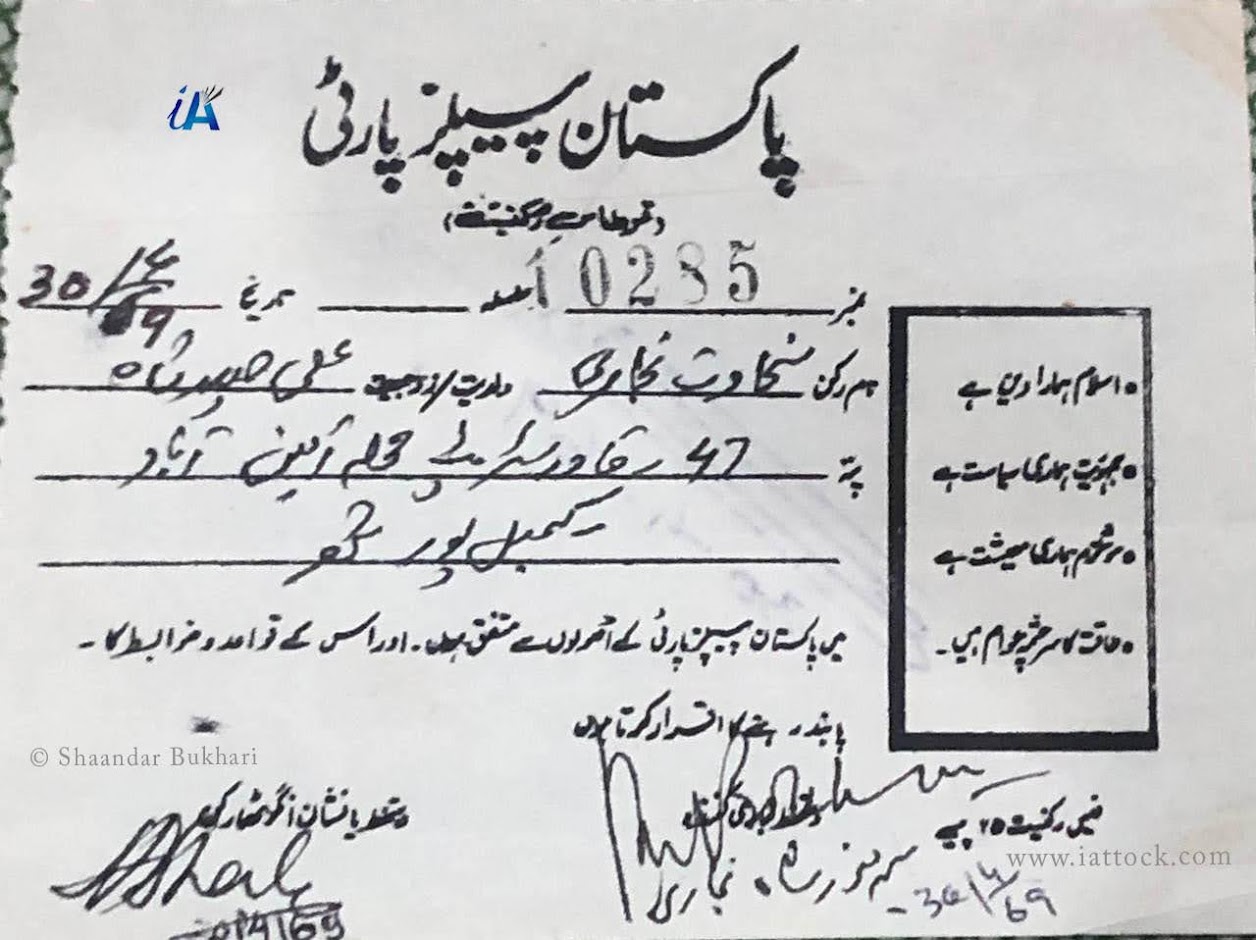 iA
پاکستان پیپلز پارٹی
(قرطاسِ رکنیت)
نمبر 10285 سلسلہ تاریخ 30/4/69
نام رکن سخاوت بخاری ولدیت/زوجیت علی حیدر شاہ
پتہ 47 محلہ امین آباد
کیمبل پور شہر
• اسلام ہمارا دین ہے
• جمہوریت ہماری سیاست ہے
• سوشلزم ہماری معیشت ہے
• طاقت کا سرچشمہ عوام ہیں۔
میں پاکستان پیپلز پارٹی کے اصولوں سے متفق ہوں۔ اور اس کے قواعد و ضوابط کا۔
پابند رہنے کا اقرار کرتا ہوں
© Shaandar Bukhari
دستخط یا نشان انگوٹھا رکن
فیس رکنیت ۲۵ پیسے
بخاری
30/4/69
www.iattock.com